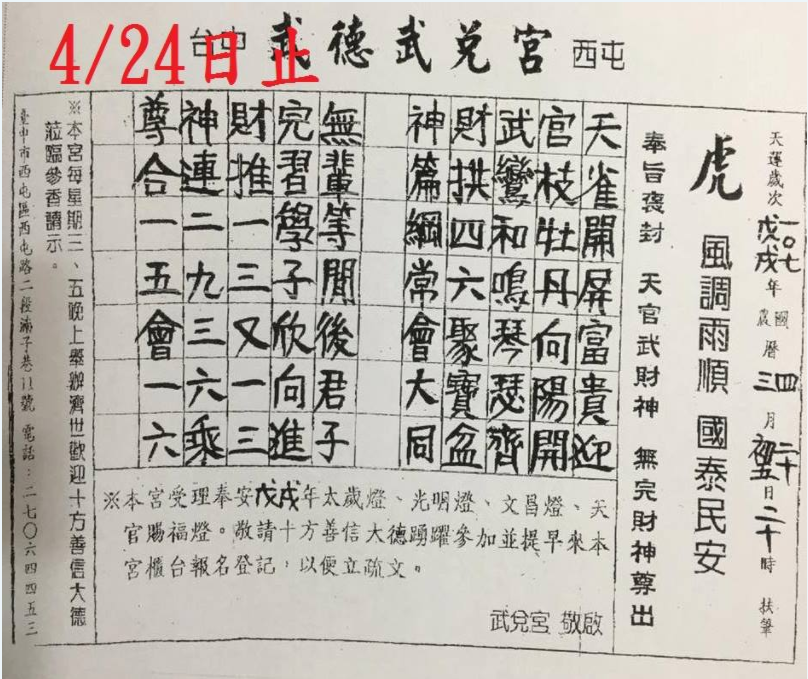 4/24日止
台中 武德武兌宮 西屯
天運歲次一〇七戊戌年國農曆四三月二十初五日二十時 扶筆
虎 風調雨順 國泰民安
奉旨褒封 天官武財神 無完財神尊出
天雀開屏富貴迎
官枝牡丹向陽開
武鸞和鳴琴瑟齊
財拱四六聚寶盆
神篇綱常會大同
無輩等閒後君子
完習學子欣向進
財推一三又一三
神連二九三六乘
尊合一五會一六
※本宮受理奉安戊戌年太歲燈、光明燈、文昌燈、天
官賜福燈。敬請十方善信大德踴躍參加並提早來本
宮櫃台報名登記，以便立疏文。
武兌宮 敬啟
※本宮每星期三、五晚上舉辦濟世歡迎十方善信大德
蒞臨參香請示。
臺中市西屯區西屯路二段湳子巷11號 電話：二七〇六四四五三